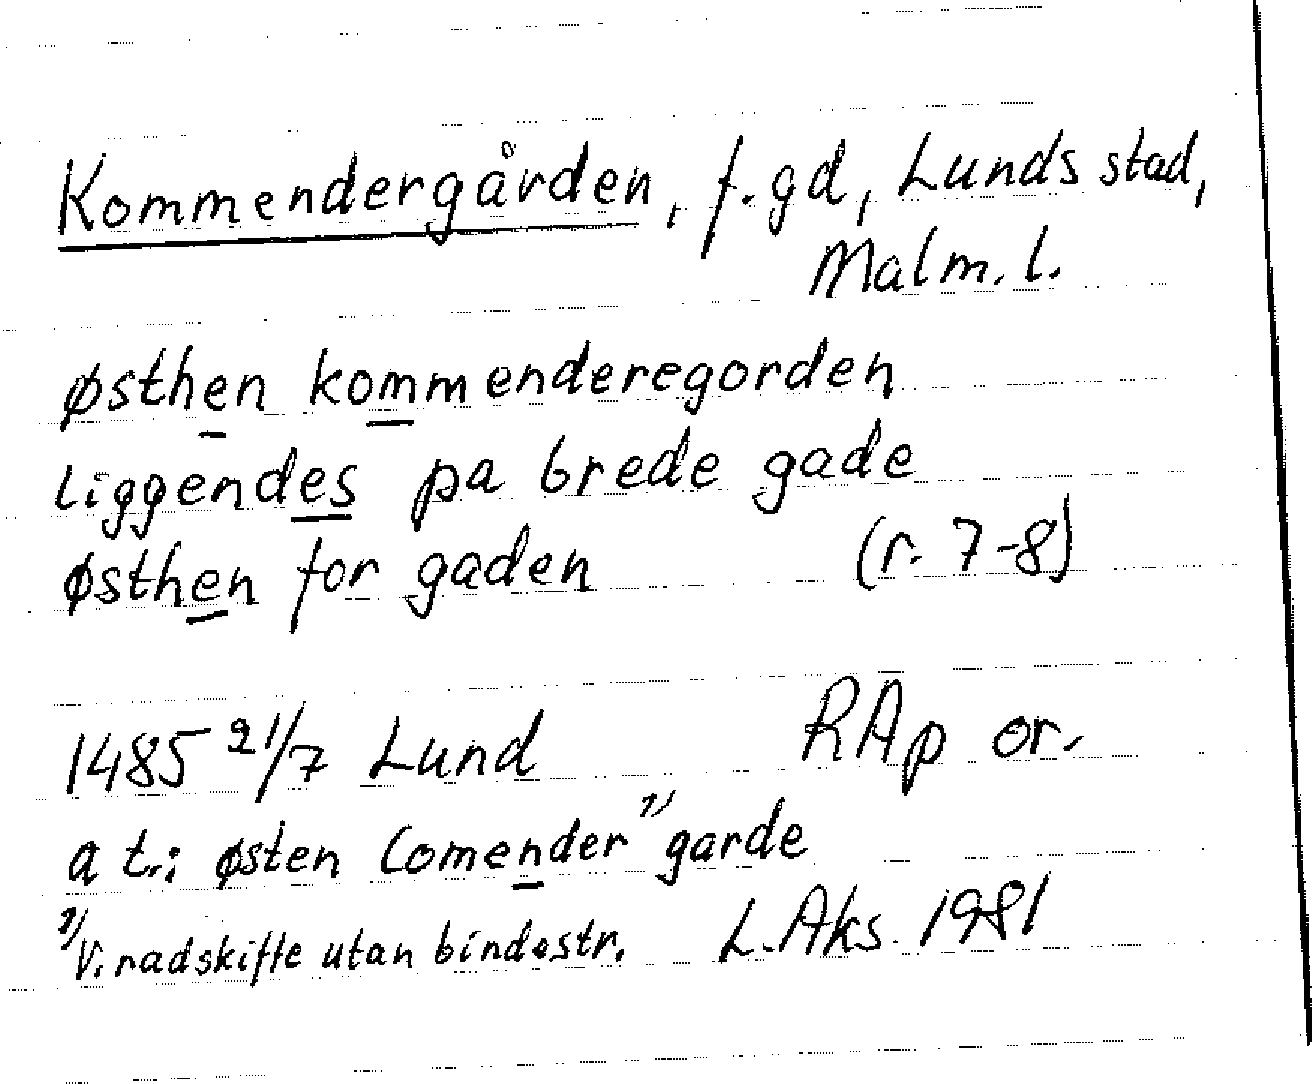 Kommendergården, f.gd, Lunds stad,
Malm. l.
østhen kommenderegorden
liggendes pa brede gade
østhen for gaden (r. 7-8)
1485 21/7 Lund RAp or.
a t.: østen Comender 1) garde
1) V. radskifte utan bindestr. L. Aks. 1981